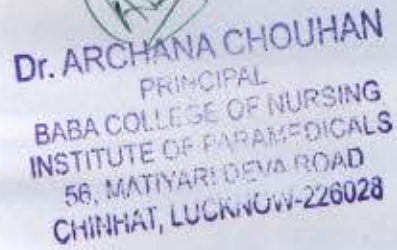 Dr. ARCHANA CHOUHAN
PRINCIPAL
BABA COLLEGE OF NURSING
INSTITUTE OF PARAMEDICALS
56, MATIYARI DEVA ROAD
CHINHAT, LUCKNOW-226028